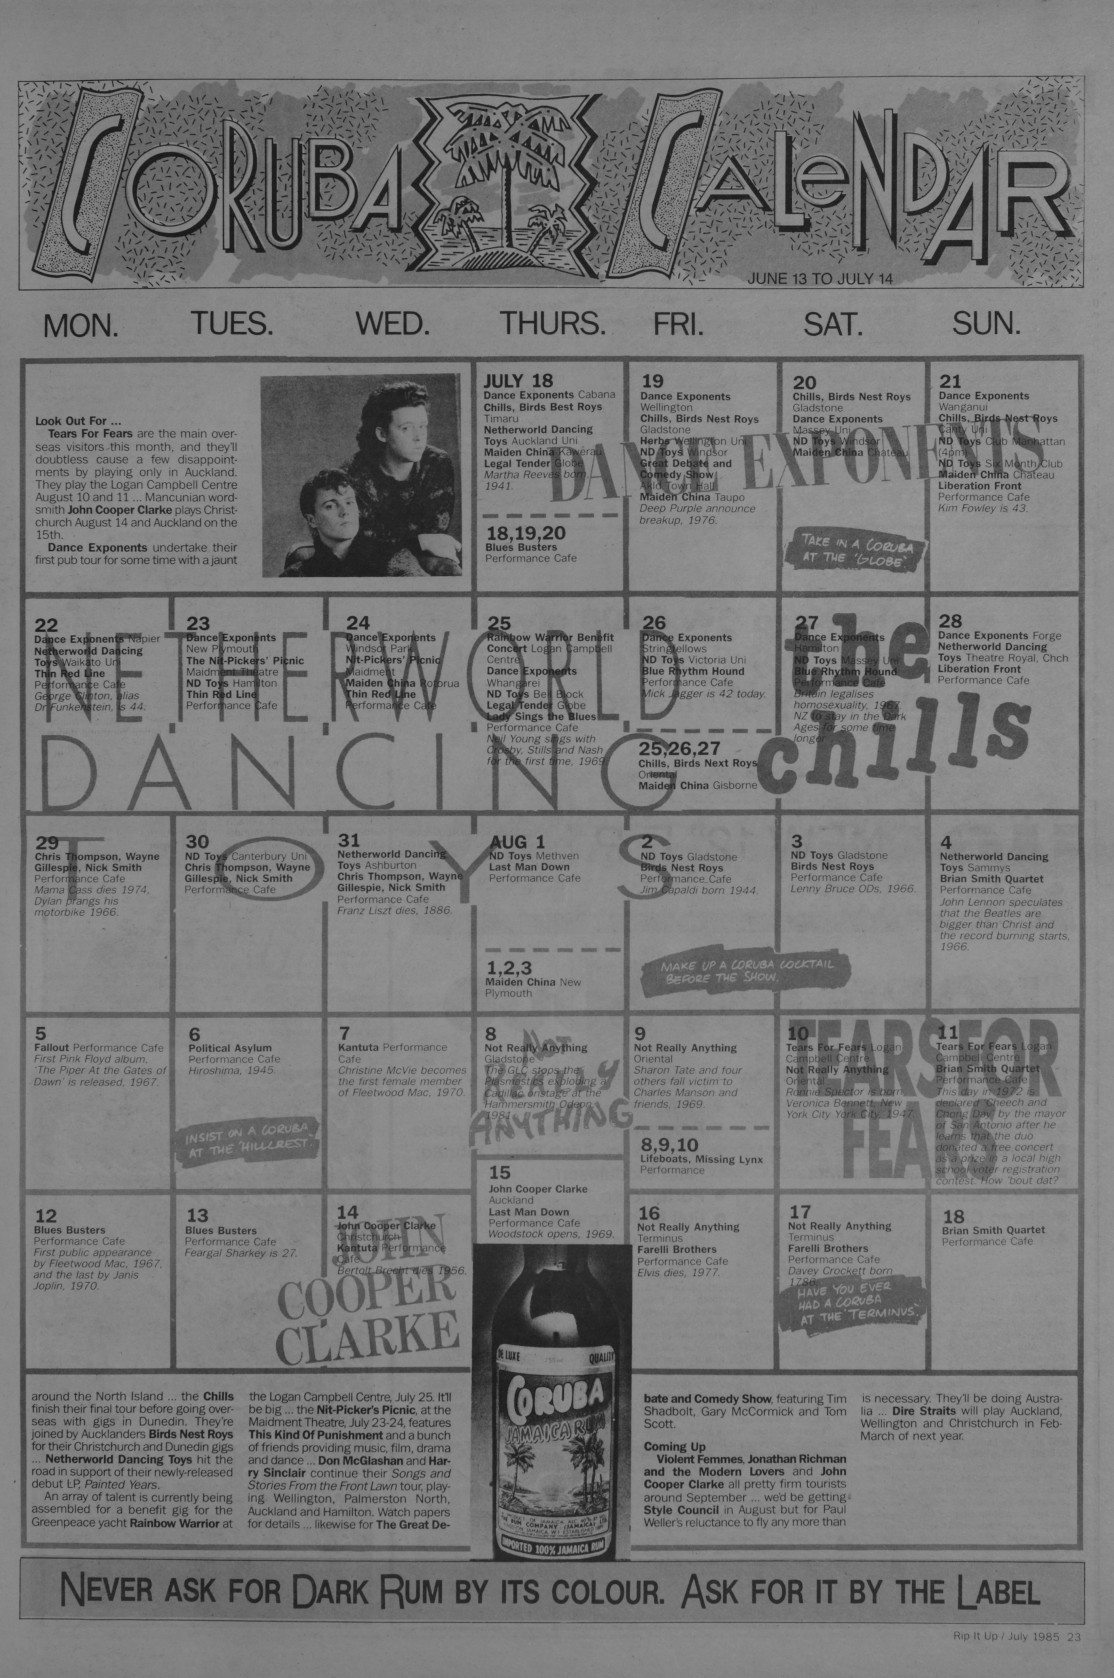 CORUBA CALENDAR
JUNE 13 TO JULY 14
MON. TUES. WED. THURS. FRI. SAT. SUN.
Look Out For ...
Tears For Fears are the main over-
seas visitors this month, and they'll
doubtless cause a few disappoint-
ments by playing only in Auckland.
They play the Logan Campbell Centre
August 10 and 11 ... Mancunian word-
smith John Cooper Clarke plays Christ-
church August 14 and Auckland on the
15th.
Dance Exponents undertake their
first pub tour for some time with a jaunt
JULY 18
Dance Exponents Cabana
Chills, Birds Best Roys
Timaru
Netherworld Dancing
Toys Auckland Uni
Maiden China Kawerau
Legal Tender Globe
Martha Reeves born
1941.
18,19,20
Blues Busters
Performance Cafe
19
Dance Exponents
Wellington
Chills, Birds Nest Roys
Gladstone
Herbs Wellington Uni
ND Toys Windsor
Great Debate and
Comedy Show
Akld Town Hall
Maiden China Taupo
Deep Purple announce
breakup, 1976.
20
Chills, Birds Nest Roys
Gladstone
Dance Exponents
Massey Uni
ND Toys Windsor
Maiden China Chateau
TAKE IN A CORUBA
AT THE 'GLOBE'.
21
Dance Exponents
Wanganui
Chills, Birds Nest Roys
Canty Uni
ND Toys Club Manhattan
(4pm)
ND Toys Six Month Club
Maiden China Chateau
Liberation Front
Performance Cafe
Kim Fowley is 43.
DANCE EXPONENTS
22
Dance Exponents Napier
Netherworld Dancing
Toys Waikato Uni
Thin Red Line
Performance Cafe
George Clinton, alias
Dr Funkenstein, is 44.
23
Dance Exponents
New Plymouth
The Nit-Pickers' Picnic
Maidment Theatre
ND Toys Hamilton
Thin Red Line
Performance Cafe
24
Dance Exponents
Windsor Park
Nit-Pickers' Picnic
Maidment
Maiden China Rotorua
Thin Red Line
Performance Cafe
25
Rainbow Warrior Benefit
Concert Logan Campbell
Centre
Dance Exponents
Whangarei
ND Toys Bell Block
Legal Tender Globe
Lady Sings the Blues
Performance Cafe
Neil Young sings with
Crosby, Stills and Nash
for the first time, 1969.
26
Dance Exponents
Stringfellows
ND Toys Victoria Uni
Blue Rhythm Hound
Performance Cafe
Mick Jagger is 42 today.
25,26,27
Chills, Birds Next Roys
Oriental
Maiden China Gisborne
27
Dance Exponents
Hamilton
ND Toys Massey Uni
Blue Rhythm Hound
Performance Cafe
Britain legalises
homosexuality, 1967.
NZ to stay in the Dark
Ages for some time
longer.
28
Dance Exponents Forge
Netherworld Dancing
Toys Theatre Royal, Chch
Liberation Front
Performance Cafe
NETHERWORLD
DANCING
TOYS
the
chills
29
Chris Thompson, Wayne
Gillespie, Nick Smith
Performance Cafe
Mama Cass dies 1974,
Dylan prangs his
motorbike 1966.
30
ND Toys Canterbury Uni
Chris Thompson, Wayne
Gillespie, Nick Smith
Performance Cafe
31
Netherworld Dancing
Toys Ashburton
Chris Thompson, Wayne
Gillespie, Nick Smith
Performance Cafe
Franz Liszt dies, 1886.
AUG 1
ND Toys Methven
Last Man Down
Performance Cafe
1,2,3
Maiden China New
Plymouth
2
ND Toys Gladstone
Birds Nest Roys
Performance Cafe
Jim Capaldi born 1944.
3
ND Toys Gladstone
Birds Nest Roys
Performance Cafe
Lenny Bruce ODs, 1966.
MAKE UP A CORUBA COCKTAIL
BEFORE THE SHOW.
4
Netherworld Dancing
Toys Sammys
Brian Smith Quartet
Performance Cafe
John Lennon speculates
that the Beatles are
bigger than Christ and
the record burning starts,
1966.
5
Fallout Performance Cafe
First Pink Floyd album,
'The Piper At the Gates of
Dawn' is released, 1967.
6
Political Asylum
Performance Cafe
Hiroshima, 1945.
INSIST ON A CORUBA
AT THE 'HILLCREST'.
7
Kantuta Performance
Cafe
Christine McVie becomes
the first female member
of Fleetwood Mac, 1970.
8
Not Really Anything
Gladstone
The GLC stops the
Plasmatics exploding a
Cadillac onstage at the
Hammersmith Odeon,
1981.
NOT
REALLY
ANYTHING
9
Not Really Anything
Oriental
Sharon Tate and four
others fall victim to
Charles Manson and
friends, 1969.
8,9,10
Lifeboats, Missing Lynx
Performance
10
Tears For Fears Logan
Campbell Centre
Not Really Anything
Oriental
Ronnie Spector is born
Veronica Bennett, New
York City York City, 1947.
11
Tears For Fears Logan
Campbell Centre
Brian Smith Quartet
Performance Cafe
This day in 1972 is
declared 'Cheech and
Chong Day' by the mayor
of San Antonio after he
learns that the duo
donated a free concert
as a prize in a local high
school voter registration
contest. How 'bout dat?
TEARS FOR
FEARS
12
Blues Busters
Performance Cafe
First public appearance
by Fleetwood Mac, 1967,
and the last by Janis
Joplin, 1970.
13
Blues Busters
Performance Cafe
Feargal Sharkey is 27.
14
John Cooper Clarke
Christchurch
Kantuta Performance
Cafe
Bertolt Brecht dies 1956.
JOHN
COOPER
CLARKE
15
John Cooper Clarke
Auckland
Last Man Down
Performance Cafe
Woodstock opens, 1969.
16
Not Really Anything
Terminus
Farelli Brothers
Performance Cafe
Elvis dies, 1977.
17
Not Really Anything
Terminus
Farelli Brothers
Performance Cafe
Davey Crockett born
1786.
HAVE YOU EVER
HAD A CORUBA
AT THE 'TERMINUS'.
18
Brian Smith Quartet
Performance Cafe
around the North Island ... the Chills
finish their final tour before going over-
seas with gigs in Dunedin. They're
joined by Aucklanders Birds Nest Roys
for their Christchurch and Dunedin gigs
... Netherworld Dancing Toys hit the
road in support of their newly-released
debut LP, Painted Years.
An array of talent is currently being
assembled for a benefit gig for the
Greenpeace yacht Rainbow Warrior at
the Logan Campbell Centre, July 25. It'll
be big ... the Nit-Picker's Picnic, at the
Maidment Theatre, July 23-24, features
This Kind Of Punishment and a bunch
of friends providing music, film, drama
and dance ... Don McGlashan and Har-
ry Sinclair continue their Songs and
Stories From the Front Lawn tour, play-
ing Wellington, Palmerston North,
Auckland and Hamilton. Watch papers
for details ... likewise for The Great De-
DE LUXE QUALITY
CORUBA
JAMAICA RUM
RUM COMPANY (JAMAICA) LTD.
IMPORTED 100% JAMAICA RUM
bate and Comedy Show, featuring Tim
Shadbolt, Gary McCormick and Tom
Scott.
Coming Up
Violent Femmes, Jonathan Richman
and the Modern Lovers and John
Cooper Clarke all pretty firm tourists
around September ... we'd be getting
Style Council in August but for Paul
Weller's reluctance to fly any more than
is necessary. They'll be doing Austra-
lia ... Dire Straits will play Auckland,
Wellington and Christchurch in Feb-
March of next year.
NEVER ASK FOR DARK RUM BY ITS COLOUR. ASK FOR IT BY THE LABEL
Rip It Up / July 1985 23